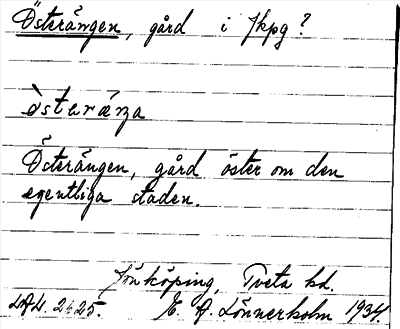 Österängen, gård i Jkpg?
östəräŋa
Österängen, gård öster om den
egentliga staden.
Jönköping, Tveta hd.
E. A. Lönnerholm 1934.